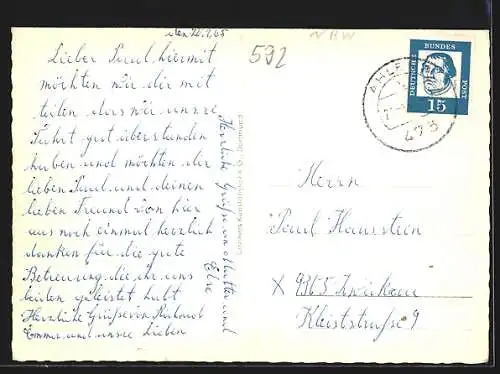 den 12.9.65
Lieber Paul, hiermit
möchten wir dir mit
teilen das wir unsre
Fahrt gut überstanden
haben und möchten dir
lieben Paul und deinen
lieben Freund von hier
aus noch einmal herzlich
danken für die gute
Betreuung die ihr uns
beiden geleistet habt
Herzliche Grüße von Helmut
Emma und unsre lieben
Herzliche Grüße von Mutter und
Else
592
NRW
DEUTSCHE BUNDESPOST
15
AHLE
473
Herrn
Paul Hausstein
X 9365 Zwickau
Kleiststraße 9